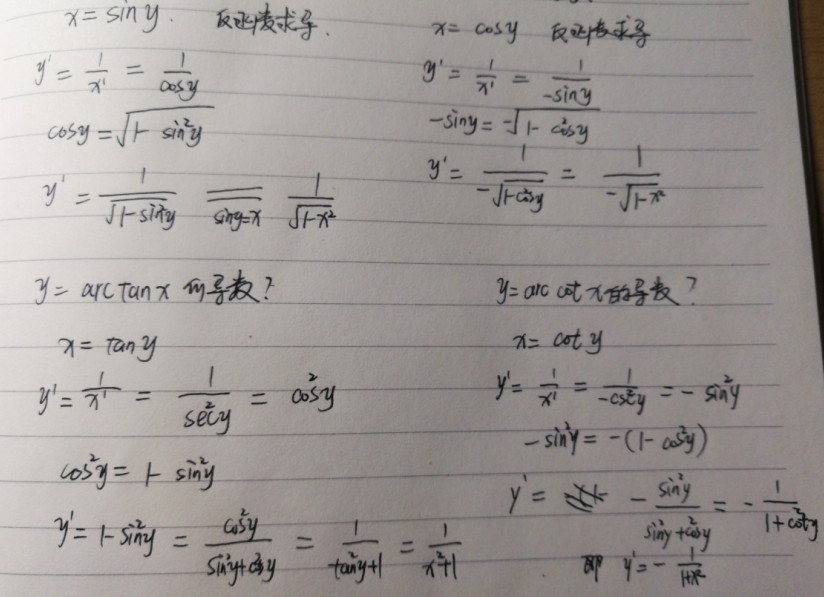 x = sin y. 反函数求导.
y' = 1/x' = 1/cosy
cosy = √(1- sin²y)
y' = 1/√(1-sin²y) ==(siny=x)== 1/√(1-x²)
x = cosy 反函数求导
y' = 1/x' = 1/-siny
-siny = -√(1- cos²y)
y' = 1/-√(1-cos²y) = 1/-√(1-x²)
y = arc tanx 的导数?
x = tany
y' = 1/x' = 1/sec²y = cos²y
cos²y = 1- sin²y
y' = 1-sin²y = cos²y/(sin²y+cos²y) = 1/(tan²y+1) = 1/(x²+1)
y = arc cot x的导数?
x = cot y
y' = 1/x' = 1/-csc²y = - sin²y
- sin²y = -(1- cos²y)
y' = - sin²y/(sin²y+cos²y) = - 1/(1+cot²y)
即 y' = - 1/(1+x²)